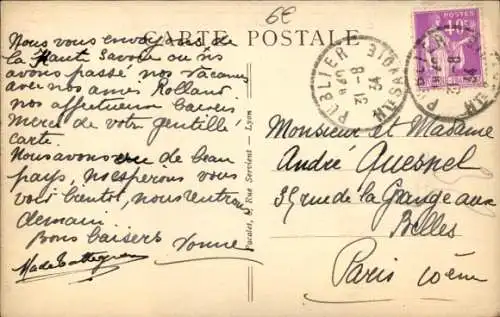 6€
CARTE POSTALE
POSTES
40c
PUBLIER
31 - 8
34
HTE SAVOIE
Nous vous envoyons de
la Haute Savoie ou ns
avons passé nos vacances
avec nos amis Rolland
nos affectueux baisers
Merci de votre gentille
carte.
Nous avons eu de beau
pays, nous esperons vous
voir bientot, nous rentrons
demain.
Bons baisers Yonne
Pacalet, 2 Rue Servient - Lyon
Monsieur et Madame
André Quesnel
35 rue de la Grange aux
Belles
Paris 10ème